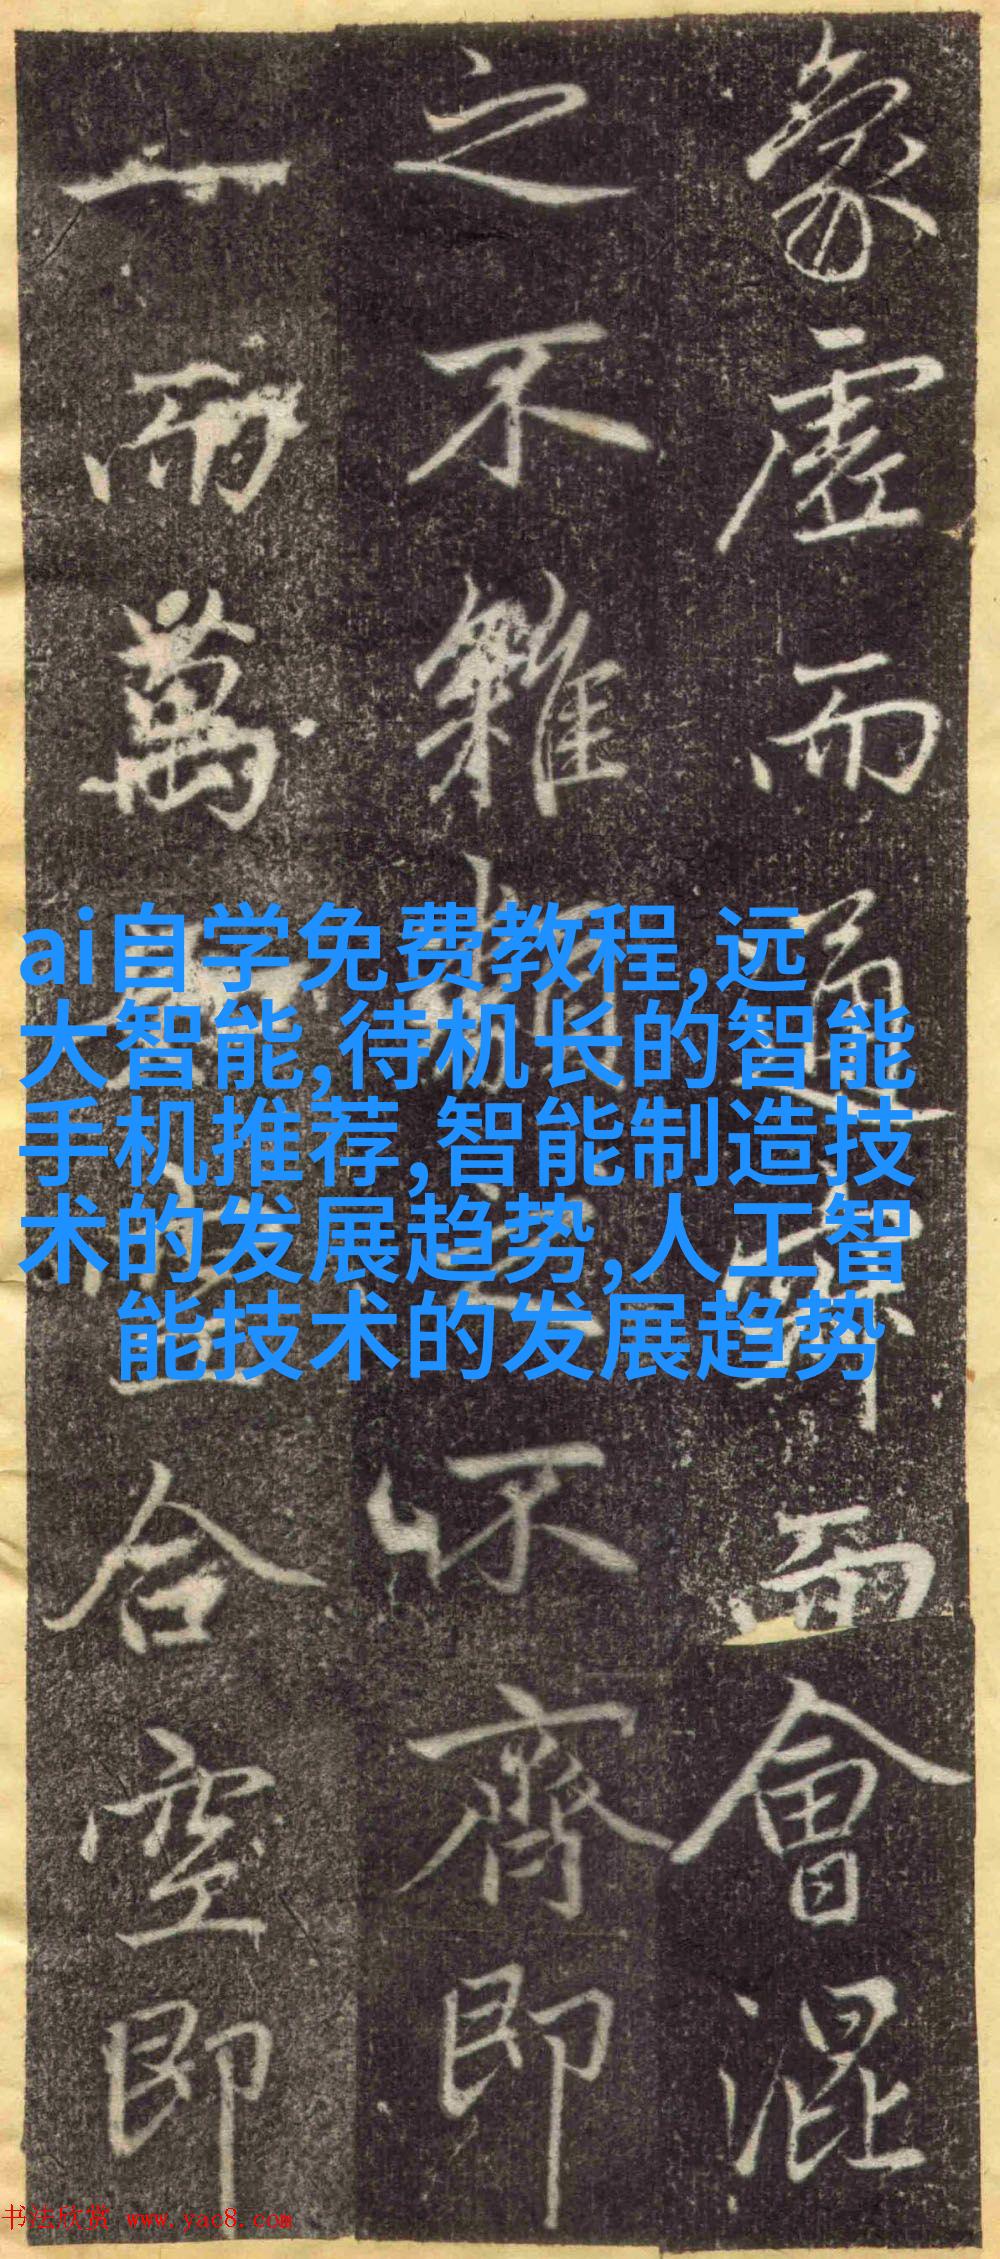 象虛而通而會混
之不雜類不齊即
一而萬合空即
ai自学免费教程,远
大智能,待机长的智能
手机推荐,智能制造技
术的发展趋势,人工智
能技术的发展趋势
书法欣赏 www.yac8.com